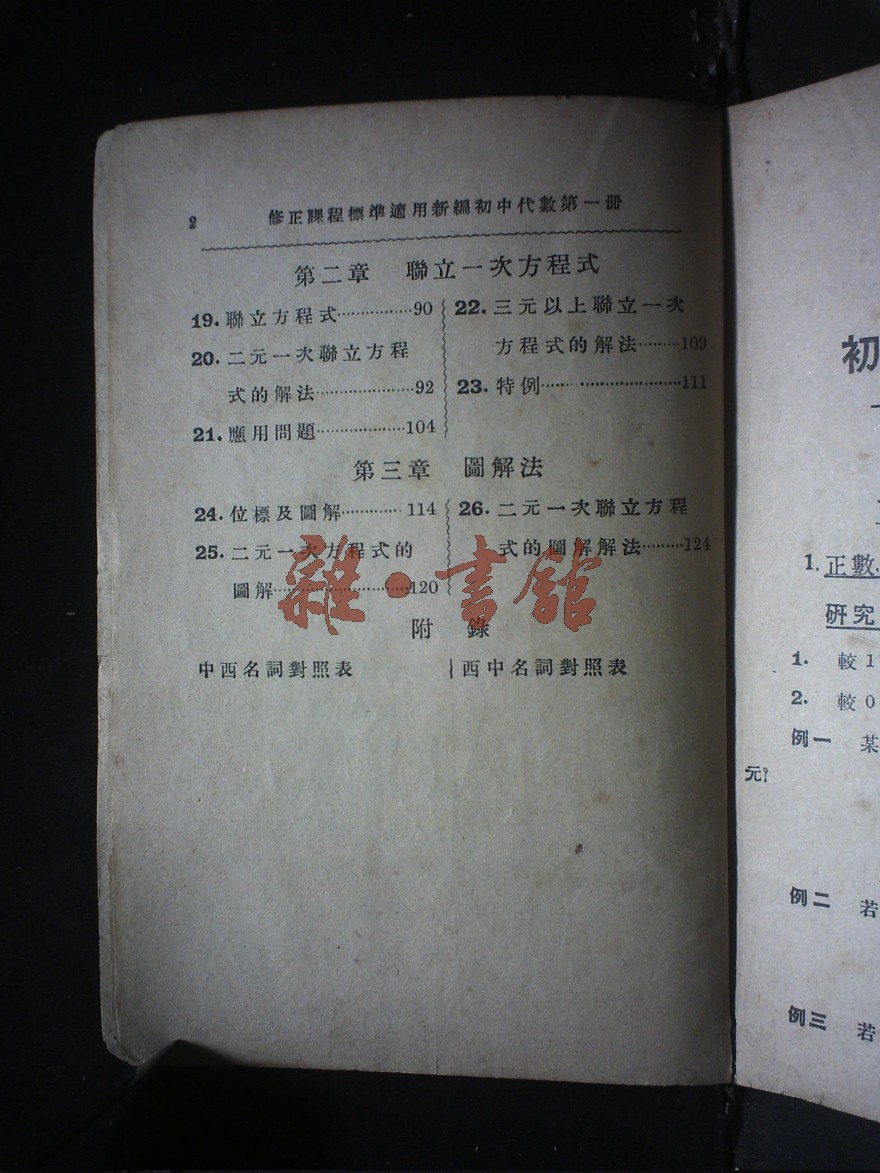 2 修正課程標準適用新編初中代數第一冊
第二章 聯立一次方程式
19. 聯立方程式················90
20. 二元一次聯立方程
式的解法·····················92
21. 應用問題···················104
22. 三元以上聯立一次
方程式的解法·········109
23. 特例······························111
第三章 圖解法
24. 位標及圖解············· 114
25. 二元一次方程式的
圖解·····························120
26. 二元一次聯立方程
式的圖解解法·········124
附 錄
中西名詞對照表
西中名詞對照表
雜·書館
初
1. 正數
研究
1. 較1
2. 較0
例一 某
元?
例二 若
例三 若